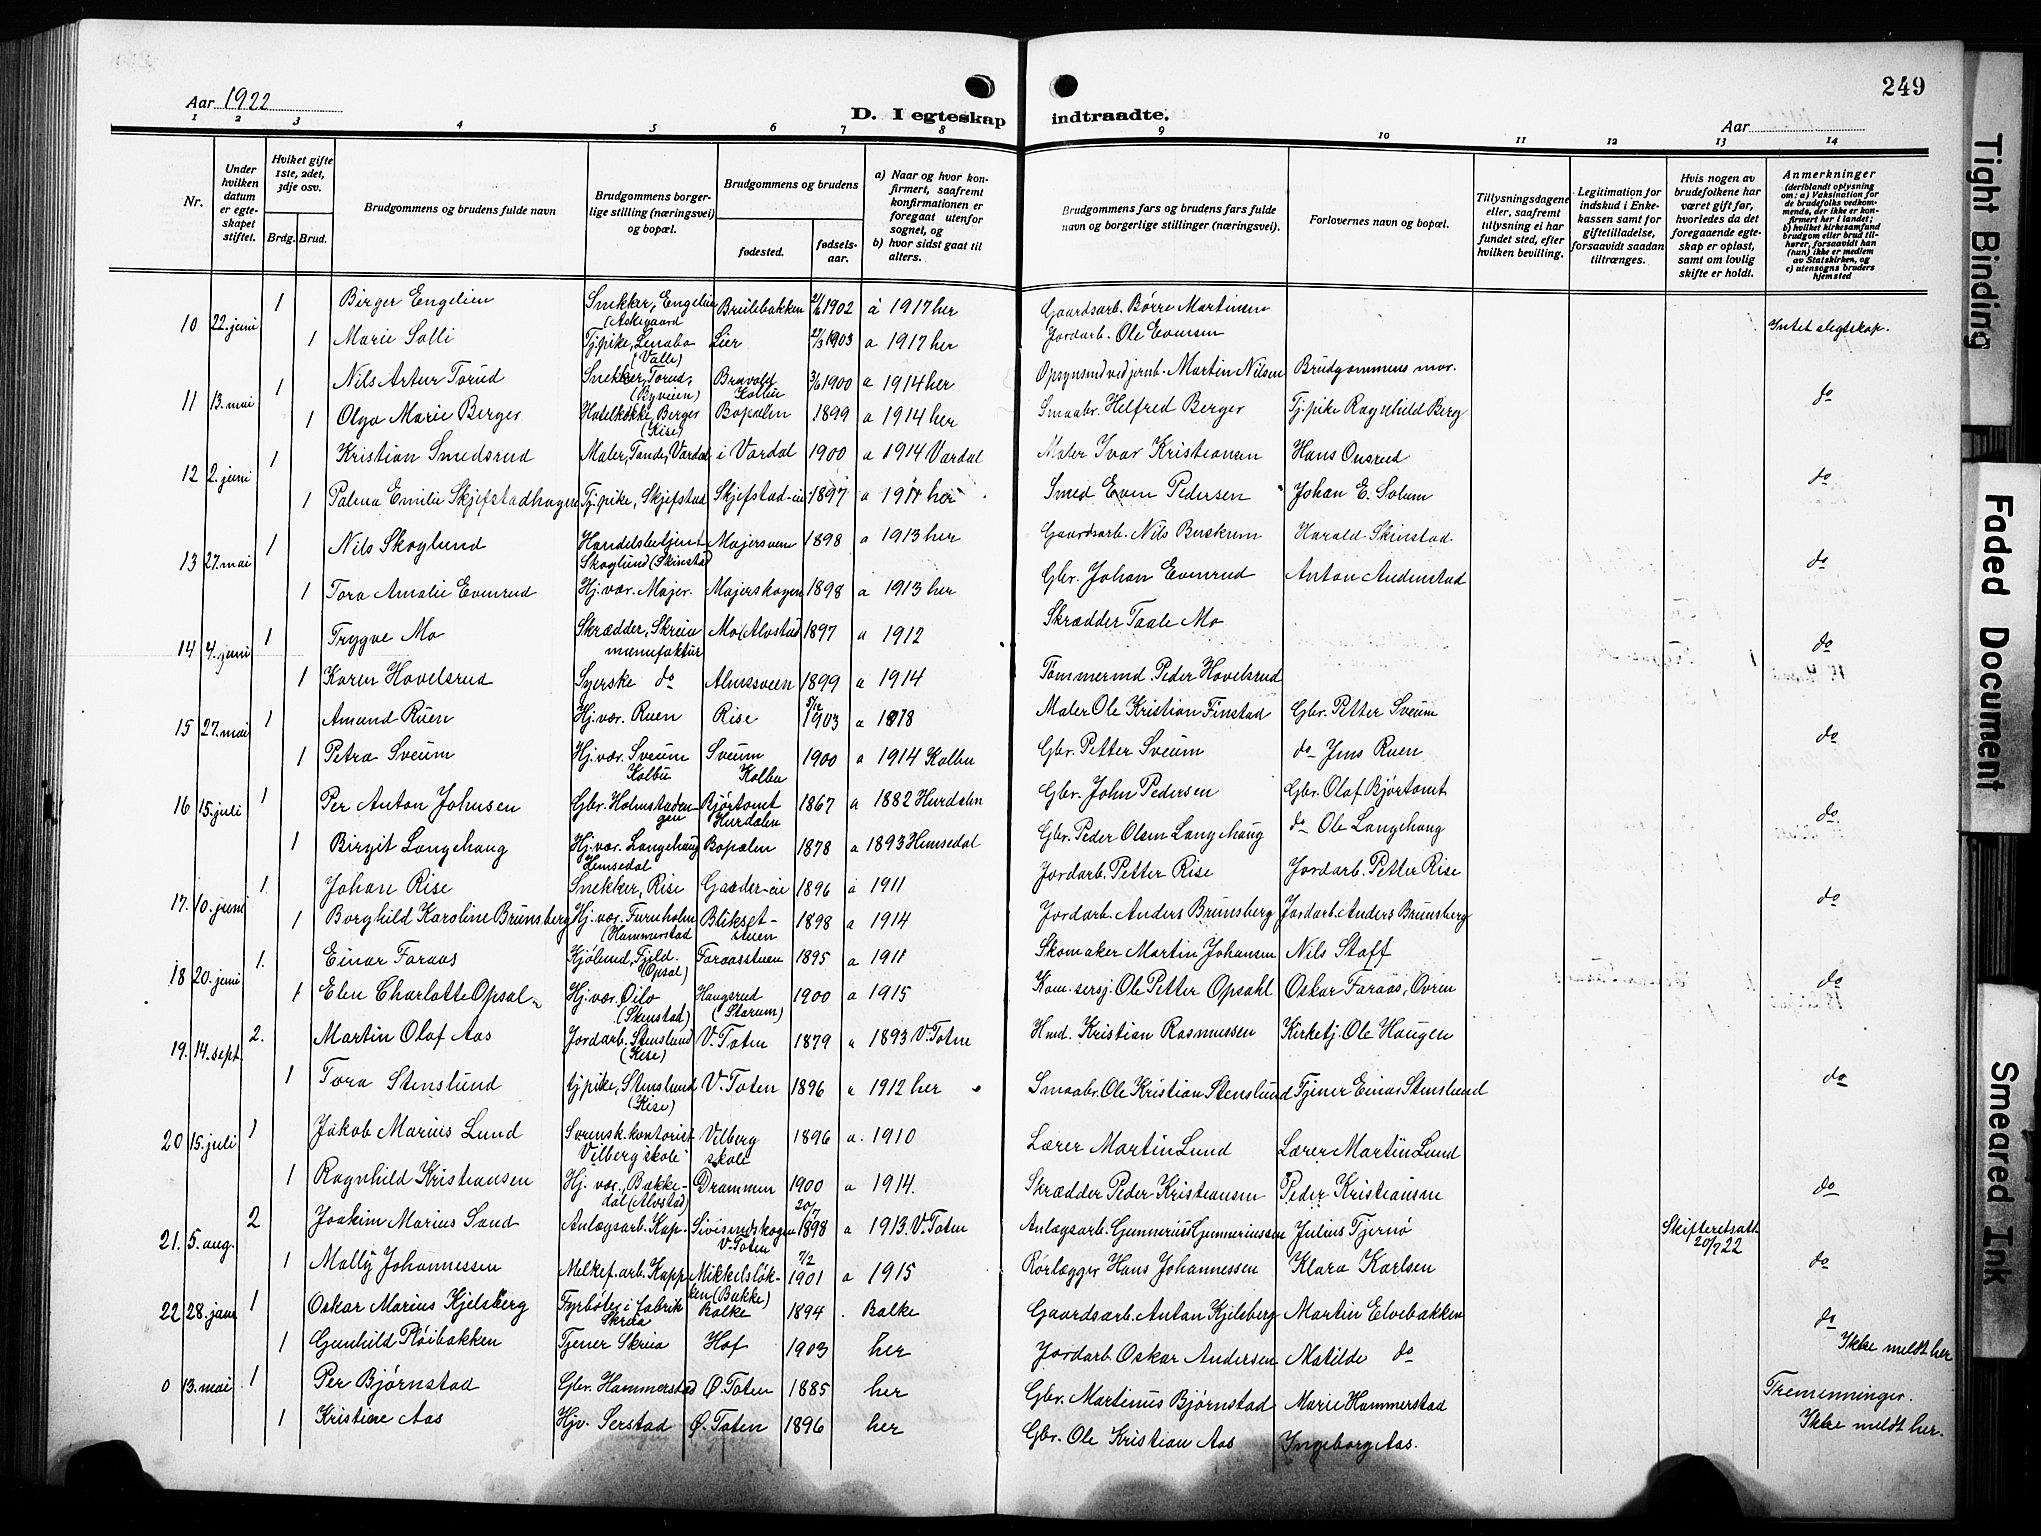 249
Aar 1922
D. I egteskap indtraadte.
Aar
1 2 3 4 5 6 7 8 9 10 11 12 13 14
Nr.
Under hvilken datum er egte-skapet stiftet.
Hvilket gifte 1ste, 2det, 3dje osv.
Brdg. Brud.
Brudgommens og brudens fulde navn
Brudgommens borger-lige stilling (næringsvei) og bopæl.
Brudgommens og brudens
fødested.
fødsels-aar.
a) Naar og hvor kon-firmert, saafremt konfirmationen er foregaat utenfor sognet, og
b) hvor sidst gaat til alters.
Brudgommens fars og brudens fars fulde navn og borgerlige stillinger (næringsvei).
Forlovernes navn og bopæl.
Tillysningsdagene eller, saafremt tillysning ei har fundet sted, efter hvilken bevilling.
Legitimation for indskud i Enke-kassen samt for giftetilladelse, forsaavidt saadan tiltrænges.
Hvis nogen av brudefolkene har været gift før, hvorledes da det foregaaende egte-skap er opløst, samt om lovlig skifte er holdt.
Anmerkninger
(deriblandt oplysning om: a) Vaksination for de brudefolks vedkom-mende, der ikke er kon-firmert her i landet; b) hvilket kirkesamfund brudgom eller brud til-hører, forsaavidt han (hun) ikke er medlem av Statskirken, og c) utensogns bruders hjemsted
10 22. juni 1 Birger Engelien Snekker, Engelien (Askegaard Brulebakken 1902 a 1917 her Gaardsarb. Børre Martinsen
1 Marie Solli Tj.pike, Lenabo (Valle) Lier 1903 a 1917 her Jordarb. Ole Evensen Intet slegtskap.
11 13. mai 1 Nils Artur Torud Snekker, Torud, (Byveien) Bravold Kolbu 1900 a 1914 her Opsynsmd vid jernb. Martin Nilsen Brudgommens mor.
1 Olga Marie Berger Hotelkokke Berger (Kise) Bopælen 1899 a 1914 her Smaabr. Helfred Berger Tj.pike Ragnhild Berg do
12 2. juni 1 Kristian Smedsrud Maler, Tande, Vardal i Vardal 1900 a 1914 Vardal Maler Ivar Kristiansen Hans Onsrud
1 Palma Emilie Skjefstadhagen Tj.pike, Skjefstad Skjefstad-eie 1897 a 1911 her Smed Even Pedersen Johan E. Solum do
13 27. mai 1 Nils Skoglund Handelsbetjent Skoglund (Skinstad Majersveen 1898 a 1913 her Gaardsarb. Nils Buskum Harald Skinstad
1 Tora Amalie Evenrud Hj. vær. Majer. Majerskogen 1898 a 1913 her Gbr. Johan Evenrud Anton Audenstad do
14 4. juni 1 Trygve Mo Skrædder, Skreia manufaktur Mo (Alvstad 1897 a 1912 Skrædder Taale Mo
1 Karen Hovelsrud Syerske do Almsveen 1899 a 1914 Tømmermd Peder Hovelsrud do
15 27. mai 1 Amund Ruen Hj. vær. Ruen Rise 5/12 1903 a 1918 Maler Ole Kristian Finstad Gbr. Petter Sveum
1 Petra Sveum Hj. vær. Sveum Kolbu Sveum Kolbu 1900 a 1914 Kolbu Gbr. Petter Sveum do Jens Ruen do
16 15. juli 1 Per Anton Johnsen Gbr. Holmstadengen Bjørtomt Hurdalen 1867 a 1882 Hurdalen Gbr. John Pedersen Gbr. Olaf Bjørtomt
1 Birgit Langehaug Hj. vær. Langehaug Hemsedal Bopælen 1878 a 1893 Hemsedal Gbr. Peder Olsen Langehaug do Ole Langehaug do
17. 10. juni 1. Johan Rise Snekker, Rise Gaarder-eie 1896 a 1911 Jordarb. Petter Rise Jordarb. Petter Rise
1 Borghild Karoline Brunsberg Hj. vær. Furuholm (Hammerstad Blikset-stuen 1898 a 1914 Jordarb. Anders Brunsberg Jordarb. Anders Brunsberg do
18 20. juni 1. Einar Faraas Kjøbmd, Fjeld. (Opsal) Faraasstuen 1895 a 1911 Skomaker Martin Johansen Nils Staff
1 Elen Charlotte Opsal Hj. vær. Oilo (Skinstad) Haugsrud (Starum) 1900 a 1915 Kom. sersj. Ole Petter Opsahl Oskar Faraas, Øvren do
19. 14. sept. 2. Martin Olaf Aas Jordarb. Stenslund (Kise) V. Toten 1879 a 1893 V. Toten Hmd. Kristian Rasmussen Kirketj. Ole Haugen
1 Tora Stenslund tj pike, Stenslund (Kise) V. Toten 1896 a 1912 her Smaabr. Ole Kristian Stenslund Tjener Einar Stenslund do
20 15. juli 1 Jakob Marius Lund Sorensk. kontorist Vilberg skole Vilberg skole 1896 a. 1910 Lærer Martin Lund Lærer Martin Lund
1 Ragnhild Kristiansen Hj. vær. Bakke-dal (Alvstad) Drammen 1900 a 1914. Skrædder Peder Kristiansen Peder Kristiansen do
21. 5. aug. 2 Joakim Marius Sand Anlægsarb. Kap. Sivesindskogen V. Toten 20/7 1898 a 1913. V. Toten Anlægsarb. Gunnerius Gunneriussen Julius Tjernø Skifteretsatt. 20/7 22
1 Mally Johannessen Melkef. arb. Kapp Mikkelsløk-ken (Bakke) 7/2 1901 a 1915 Rørlægger Hans Johannessen Klara Karlsen do
22 28. jan 1 Oskar Marius Kjelsberg Fyrbøter i fabrik Skreia Balke 1894 . Balke Gaardsarb. Anton Kjelsberg Martin Elvebakken do
1 Gunhild Pløibakken Tjener Skreia Hof 1903 her Jordarb Oskar Andersen Matilde do Ikke meldt her
0 13. mai 1 Per Bjørnstad Gbr. Hammerstad Ø. Toten 1885 her Gbr. Martinus Bjørnstad Marie Hammerstad Tremenninger.
1 Kristine Aas Hjv. Serstad Ø. Toten 1896 her Gbr. Ole Kristian Aas Ingeborg Aas. Ikke meldt her.
Tight Binding
Faded Document
Smeared Ink